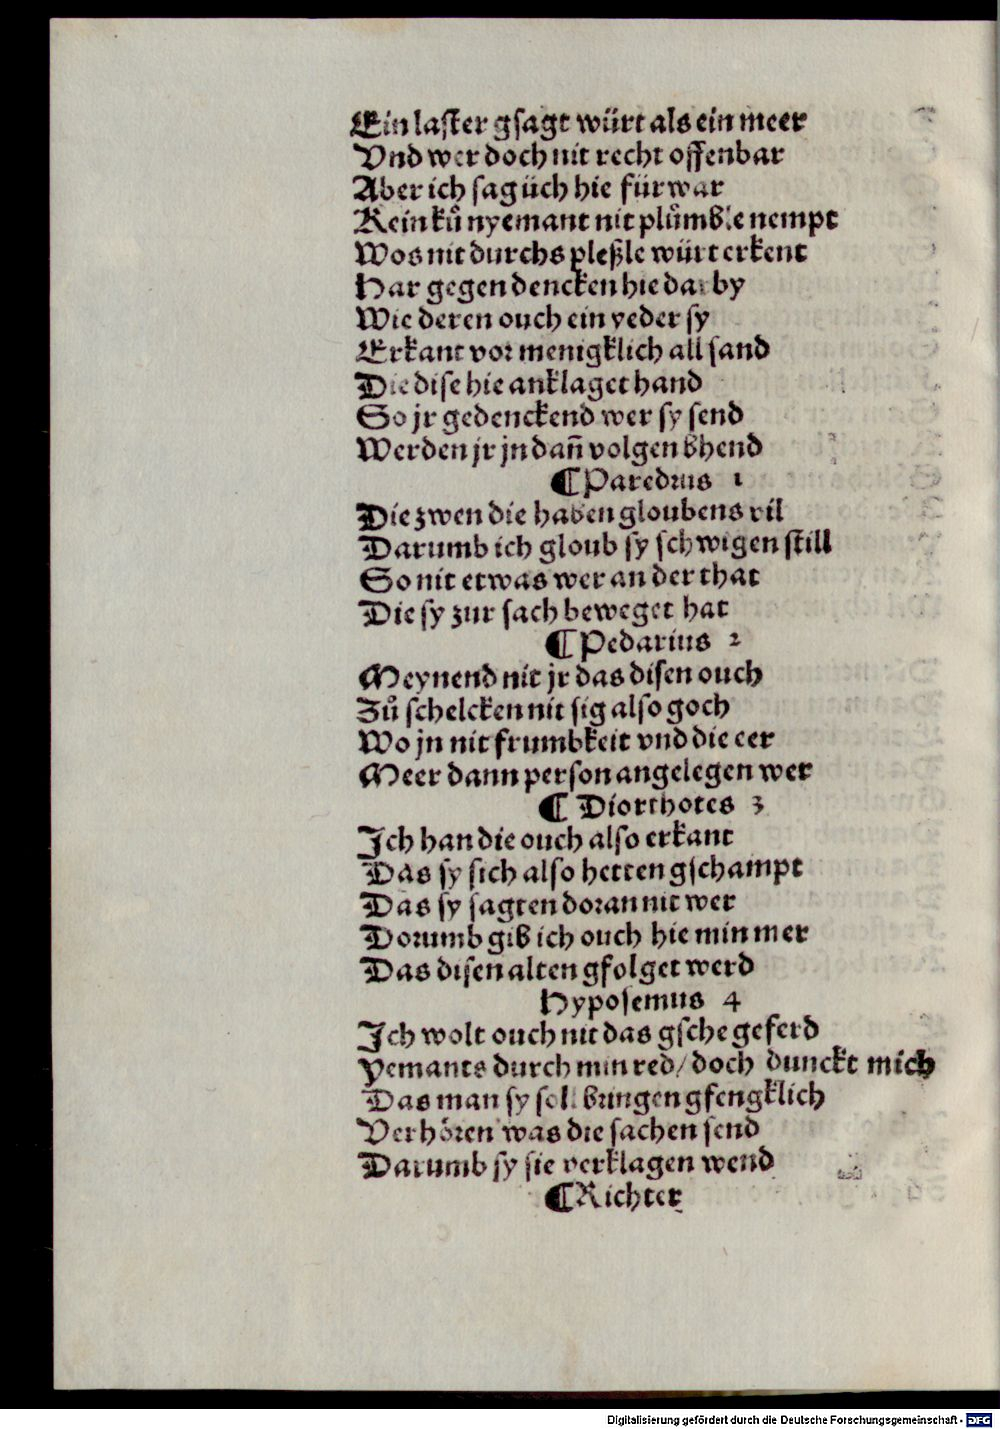 Ein laster gsagt würt als ein meer
Vnd wer doch nit recht offenbar
Aber ich sag üch hie fürwar
Kein kuͤ nyemant nit pluͤmble nempt
Wos nit durchs pleßle würt erkent
Har gegen dencken hie darby
Wie deren ouch ein yeder sy
Erkant vor menigklich all sand
Die dise hie anklaget hand
So jr gedenckend wer sy send
Werden jr jn dañ volgen bhend
¶ Paredrus 1
Die zwen die haben gloubens vil
Darumb ich gloub sy schwigen still
So nit etwas wer an der that
Die sy zur sach beweget hat
¶ Pedarius 2
Meynend nit jr das disen ouch
Zuͤ schelcken nit sig also goch
Wo jn nit frumbkeit vnd die eer
Meer dann person angelegen wer
¶ Diorthotes 3
Ich han die ouch also erkant
Das sy sich also hetten gschampt
Das sy sagten doran nit wer
Dorumb gib ich ouch hie min mer
Das disen alten gfolget werd
Hyposemus 4
Ich wolt ouch nit das gsche geferd
Yemants durch min red/ doch dunckt mich
Das man sy soll bringen gfengklich
Verhören was die sachen send
Darumb sy sie verklagen wend
¶ Richter
Digitalisierung gefördert durch die Deutsche Forschungsgemeinschaft - DFG